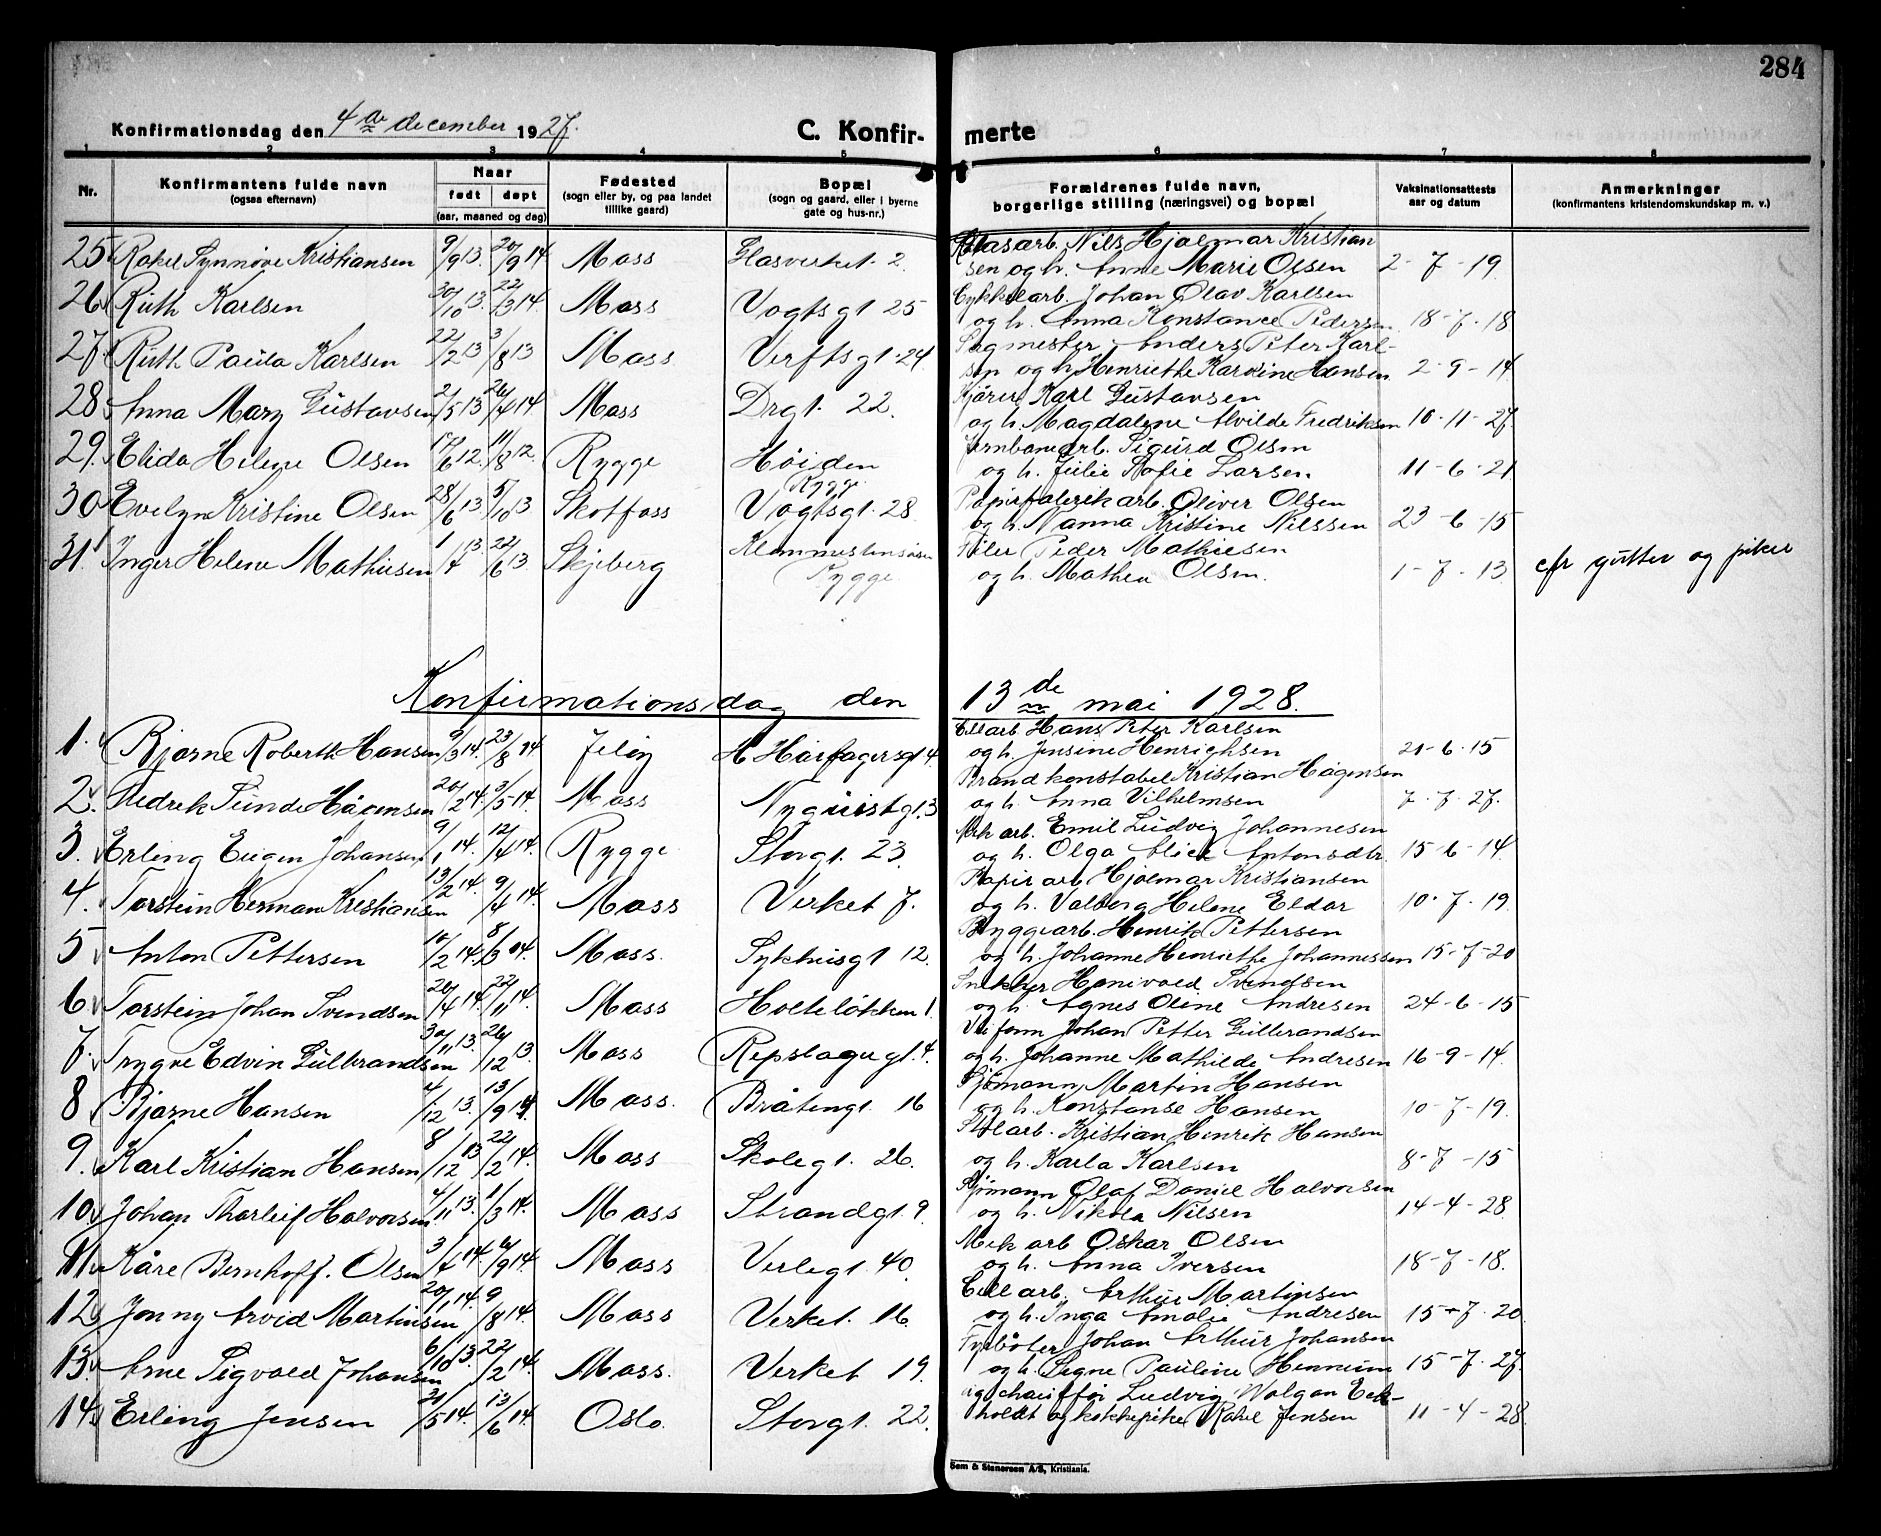 284
Konfirmationsdag den 4de december 1927.
C. Konfir- merte
1 2 3 4 5 6 7 8
Nr.
Konfirmantens fulde navn
(ogsaa efternavn)
Naar
født døpt
(aar, maaned og dag)
Fødested
(sogn eller by, og paa landet
tillike gaard)
Bopæl
(sogn og gaard, eller i byerne
gate og hus-nr.)
Forældrenes fulde navn,
borgerlige stilling (næringsvei) og bopæl
Vaksinationsattests
aar og datum
Anmerkninger
(konfirmantens kristendomskundskap m. v.)
25 Rakel Synnøve Kristiansen 9/9 13. 20/9 14 Moss Glasverket 2. Glasarb. Nils Hjalmar Kristian
sen og h. Anne Marie Olsen 2-7-19
26 Ruth Karlsen 30/10 13. 22/3 14. Moss Vogtsgt 25 Cykkelarb. Johan Olav Karlsen
og h. Anna Konstance Pedersen 18-7-18
27. Ruth Paula Karlsen 22/2 13 3/8 13 Moss Verftsgt. 24 Sagmester Anders Peter Karl-
sen og h. Henriethe Karoline Hansen 2-9-14
28 Anna Mary Gustavsen 2/5 13 26/4 14 Moss Drgt. 22. Kjører Karl Gustavsen
og h. Magdalene Alvilde Fredriksen 10-11-27
29. Elida Helene Olsen 17/6 12. 11/8 12. Rygge Høiden
Rygge Jernbanearb. Sigurd Olsen
og h. Julie Sofie Larsen. 11-6-21
30 Evelyn Kristine Olsen 28/6 13. 5/10 13 Skotfoss Vogtsgt. 28 Papirfabrikarb. Oliver Olsen
og h. Nanna Kristine Nilssen 23-6-15
31. Inger Helene Mathiesen 1/4 13. 22/6 13 Skjeberg
Rygge Filer Peder Mathiesen
og h. Mathea Olsen. 1-7-13 cfr gutter og piker
Konfirmationsdag den 13de mai 1928.
1. Bjarne Roberth Hansen 9/3 14. 23/8 14 Jeløy H Hårfagersgt 4. Cellarb Hans Peter Karlsen
og h. Jensine Henrichsen 21-6-15
2. Fredrik Sunde Hågensen 20/2 14. 3/5 14. Moss Nyquistgt. 3 Brandkonstabel Kristian Hågensen
og h. Anna Vilhelmsen 7-7-27.
3. Erling Eugen Johansen 9/1 14. 12/4 14. Rygge Storgt. 23. Mek arb. Emil Ludvig Johannesen
og h. Olga Alice Antonsdtr. 15-6-14.
4. Torstein Herman Kristiansen 13/2 14. 9/4 14. Moss Verket 7. Papir arb Hjalmar Kristiansen
og h. Valborg Helene Eldor 10-7-19.
5 Anton Pettersen 10/2 14. 8/3 14. Moss. Sykhusgt 12. Byggearb. Henrik Pettersen
og h. Johanne Henriethe Johannessen 15-7-20
6 Torstein Johan Svendsen 20/4 14. 22/11 14. Moss Holteløkken 1. Snekker Hanivald Svendsen
og h. Agnes Oline Andresen 24-6-15
7. Trygve Edvin Gulbrandsen 30/11 13. 26/12 13. Moss Repslagergt. 4. Veiform Johan Petter Gulbrandsen
og h. Johanne Mathilde Andresen 16-9-14.
8 Bjarne Hansen 4/12 13. 13/9 14. Moss. Bråtengt. 16 Sjømann Martin Hansen
og h. Konstanse Hansen 10-7-19.
9. Karl Kristian Hansen 8/12 13 22/2 14. Moss Skolegt. 26. Stålarb. Kristian Henrik Hansen
og h. Karla Karlsen 8-7-15
10. Johan Thorleif Halvorsen 4/11 13. 1/3 14. Moss Strandgt. 9. Sjømann Olaf Daniel Halvorsen
og h. Nikola Nilsen 14-4-28.
11. Kåre Bernhoff. Olsen 3/4 14. 6/9 14. Moss Verlegt. 40. Mek arb Oskar Olsen
og h. Anna Iversen 18-7-18.
12. Jonny Arvid Martinsen 20/1 14. 9/8 14. Moss Verket. 16. Cellarb. Arthur Martinsen
og h. Inga Amalie Andresen 15-7-20.
13. Arne Sigvald Johansen 6/10 13. 22/2 14. Moss. Verket 19. Fyrbøter Johan Arthur Johansen
og h. Signe Pauline Hennum 15-7-27.
14. Erling Jensen 21/5 14. 13/6 14. Oslo. Storgt. 22. chauffør Ludvig Eck-
holdt og kokkepike Rakel Jensen 11-4-28.
Sem & Stenersen A/S, Kristiania.